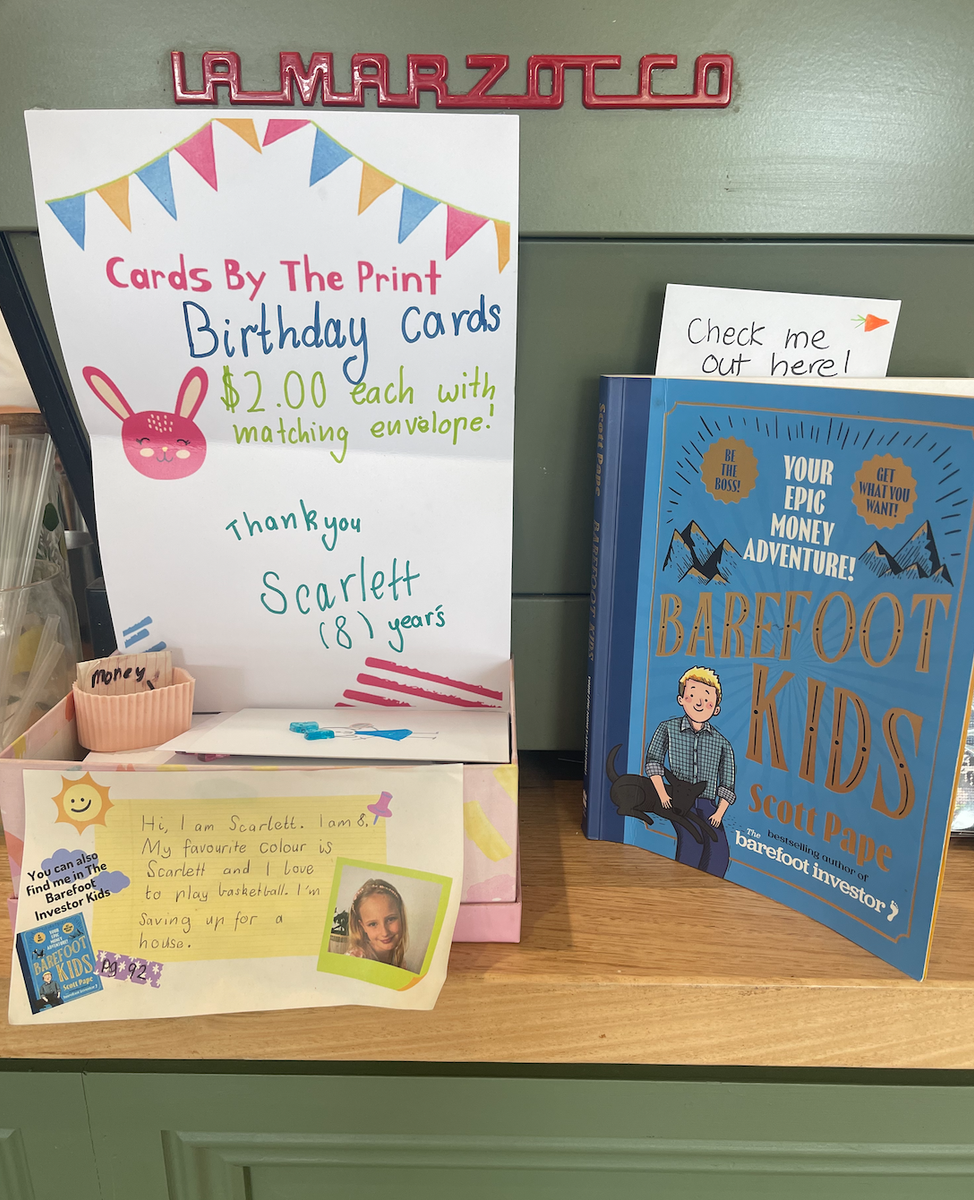 LA MARZOCCO
Cards By The Print
Birthday Cards
$2.00 each with
matching envelope!
Thankyou
Scarlett
(8) year's
money
Hi, I am Scarlett. I am 8.
My favourite colour is
Scarlett and I love
to play basketball. I'm
saving up for a
house.
You can also
find me in The
Barefoot
Investor Kids
YOUR
EPIC
MONEY
ADVENTURE!
BAREFOOT
KIDS
Scott Pape
barefoot investor
pg 92
Check me
out here!
Scott Pape
BAREFOOT KIDS
BE
THE
BOSS!
YOUR
EPIC
MONEY
ADVENTURE!
GET
WHAT YOU
WANT!
BAREFOOT
KIDS
Scott Pape
The bestselling author of
barefoot investor